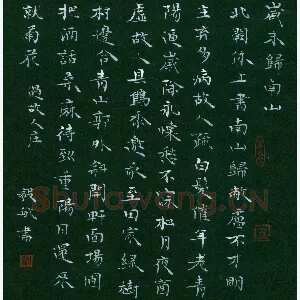 歲末歸南山
北闕休上書南山歸敝廬不才明
主棄多病故人疏白髮催年老青
陽逼歲除永懷愁不寐松月夜窗
虛故人具鷄黍邀我至田家綠樹
村邊合青山郭外斜開軒面場圃
把酒話桑麻待到重陽日還來
就菊花 過故人莊
書
Shufawang.CN